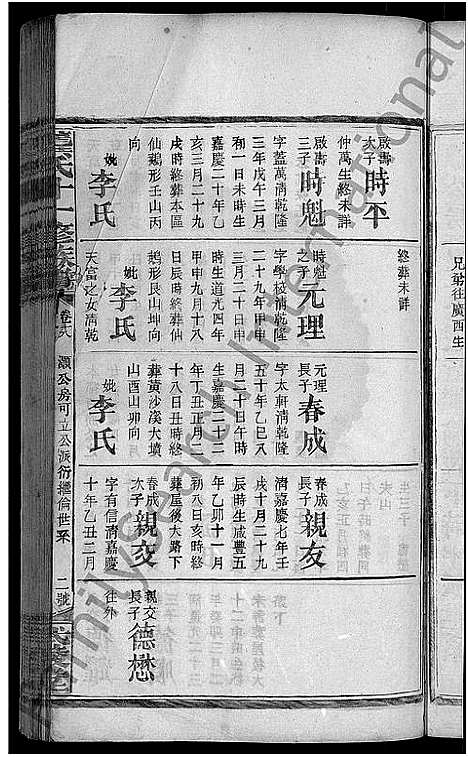 啟壽
次子
時平
仲萬生終未詳
啟壽
三子
時魁
字蓋萬清乾隆
三年戊午三月
初一日未時生
嘉慶二十年乙
亥三月二十九
戌時終葬本區
仙鵝形壬山丙
向
妣李氏
終葬未詳
時魁
之子
元理
字學校清乾隆
二十九年甲申
三月二十日申
時生道光四年
甲申九月十八
日辰時終葬仙
鵝形艮山坤向
妣李氏
天富之女清乾
元理
長子
春成
字太軒清乾隆
五十年乙巳八
月二十日午時
生嘉慶二十二
年丁丑正月二
十八日丑時終
葬黃沙溪大墳
山酉山卯向
妣李氏
春成
長子
親友
清嘉慶七年壬
戌十月二十九
辰時生咸豐五
年乙卯十一月
初八日亥時終
葬屋後大路下
春成
次子
親交
字有信清嘉慶
十年乙丑二月
親交
長子
德懋
往外
灝公房可立公派衍攉倫世系
二號
兄弟往廣西生
Familysearch International